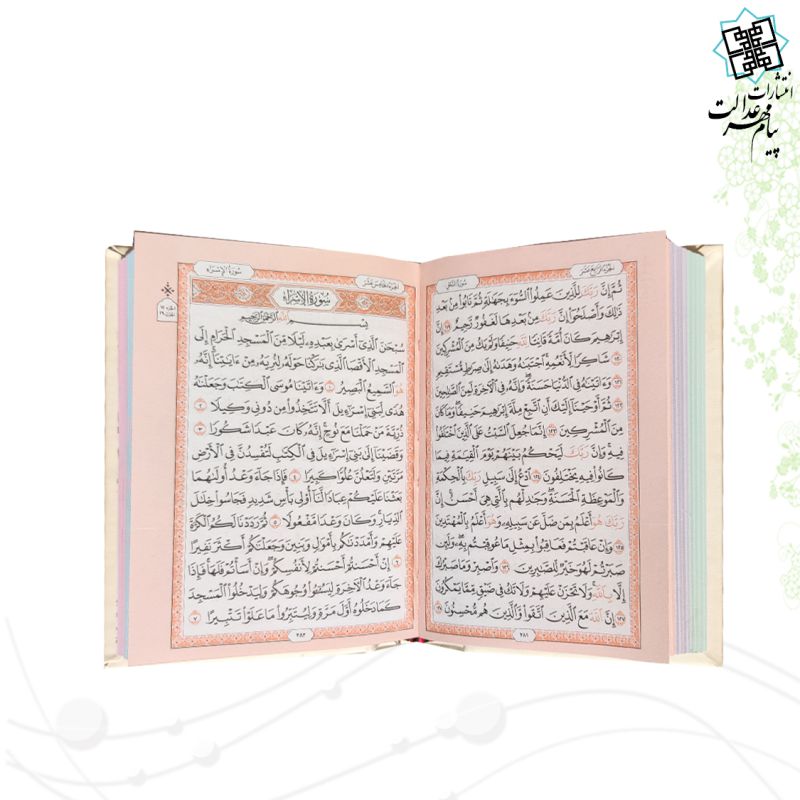 انتشارات
پیام مهر عدالت
الجزء الرابع عشر
سورة النحل
ثُمَّ إِنَّ رَبَّكَ لِلَّذِينَ عَمِلُوا۟ ٱلسُّوٓءَ بِجَهَـٰلَةٍ ثُمَّ تَابُوا۟ مِنۢ بَعْدِ
ذَٰلِكَ وَأَصْلَحُوٓا۟ إِنَّ رَبَّكَ مِنۢ بَعْدِهَا لَغَفُورٌ رَّحِيمٌ ١١٩ إِنَّ
إِبْرَٰهِيمَ كَانَ أُمَّةً قَانِتًا لِّلَّهِ حَنِيفًا وَلَمْ يَكُ مِنَ ٱلْمُشْرِكِينَ
١٢٠ شَاكِرًا لِّأَنْعُمِهِ ٱجْتَبَىٰهُ وَهَدَىٰهُ إِلَىٰ صِرَٰطٍ مُّسْتَقِيمٍ
١٢١ وَءَاتَيْنَـٰهُ فِى ٱلدُّنْيَا حَسَنَةً وَإِنَّهُۥ فِى ٱلْـَٔاخِرَةِ لَمِنَ ٱلصَّـٰلِحِينَ
١٢٢ ثُمَّ أَوْحَيْنَآ إِلَيْكَ أَنِ ٱتَّبِعْ مِلَّةَ إِبْرَٰهِيمَ حَنِيفًا وَمَا كَانَ
مِنَ ٱلْمُشْرِكِينَ ١٢٣ إِنَّمَا جُعِلَ ٱلسَّبْتُ عَلَى ٱلَّذِينَ ٱخْتَلَفُوا۟
فِيهِ وَإِنَّ رَبَّكَ لَيَحْكُمُ بَيْنَهُمْ يَوْمَ ٱلْقِيَـٰمَةِ فِيمَا
كَانُوا۟ فِيهِ يَخْتَلِفُونَ ١٢٤ ٱدْعُ إِلَىٰ سَبِيلِ رَبِّكَ بِٱلْحِكْمَةِ
وَٱلْمَوْعِظَةِ ٱلْحَسَنَةِ وَجَـٰدِلْهُم بِٱلَّتِى هِىَ أَحْسَنُ إِنَّ
رَبَّكَ هُوَ أَعْلَمُ بِمَن ضَلَّ عَن سَبِيلِهِۦ وَهُوَ أَعْلَمُ بِٱلْمُهْتَدِينَ
١٢٥ وَإِنْ عَاقَبْتُمْ فَعَاقِبُوا۟ بِمِثْلِ مَا عُوقِبْتُم بِهِۦ وَلَئِن
صَبَرْتُمْ لَهُوَ خَيْرٌ لِّلصَّـٰبِرِينَ ١٢٦ وَٱصْبِرْ وَمَا صَبْرُكَ
إِلَّا بِٱللَّهِ وَلَا تَحْزَنْ عَلَيْهِمْ وَلَا تَكُ فِى ضَيْقٍ مِّمَّا يَمْكُرُونَ
١٢٧ إِنَّ ٱللَّهَ مَعَ ٱلَّذِينَ ٱتَّقَوا۟ وَّٱلَّذِينَ هُم مُّحْسِنُونَ ١٢٨
٢٨١
الجزء الخامس عشر
سورة الإسراء
سُورَةُ الإِسْرَاء
بِسْمِ ٱللَّهِ ٱلرَّحْمَـٰنِ ٱلرَّحِيمِ
سُبْحَـٰنَ ٱلَّذِىٓ أَسْرَىٰ بِعَبْدِهِۦ لَيْلًا مِّنَ ٱلْمَسْجِدِ ٱلْحَرَامِ إِلَى
ٱلْمَسْجِدِ ٱلْأَقْصَا ٱلَّذِى بَـٰرَكْنَا حَوْلَهُۥ لِنُرِيَهُۥ مِنْ ءَايَـٰتِنَآ إِنَّهُۥ
هُوَ ٱلسَّمِيعُ ٱلْبَصِيرُ ١ وَءَاتَيْنَا مُوسَى ٱلْكِتَـٰبَ وَجَعَلْنَـٰهُ
هُدًى لِّبَنِىٓ إِسْرَٰٓءِيلَ أَلَّا تَتَّخِذُوا۟ مِن دُونِى وَكِيلًا ٢
ذُرِّيَّةَ مَنْ حَمَلْنَا مَعَ نُوحٍ إِنَّهُۥ كَانَ عَبْدًا شَكُورًا ٣
وَقَضَيْنَآ إِلَىٰ بَنِىٓ إِسْرَٰٓءِيلَ فِى ٱلْكِتَـٰبِ لَتُفْسِدُنَّ فِى ٱلْأَرْضِ
مَرَّتَيْنِ وَلَتَعْلُنَّ عُلُوًّا كَبِيرًا ٤ فَإِذَا جَآءَ وَعْدُ أُولَىٰهُمَا
بَعَثْنَا عَلَيْكُمْ عِبَادًا لَّنَآ أُو۟لِى بَأْسٍ شَدِيدٍ فَجَاسُوا۟ خِلَـٰلَ
ٱلدِّيَارِ وَكَانَ وَعْدًا مَّفْعُولًا ٥ ثُمَّ رَدَدْنَا لَكُمُ ٱلْكَرَّةَ
عَلَيْهِمْ وَأَمْدَدْنَـٰكُم بِأَمْوَٰلٍ وَبَنِينَ وَجَعَلْنَـٰكُمْ أَكْثَرَ نَفِيرًا
٦ إِنْ أَحْسَنتُمْ أَحْسَنتُمْ لِأَنفُسِكُمْ وَإِنْ أَسَأْتُمْ فَلَهَا فَإِذَا
جَآءَ وَعْدُ ٱلْـَٔاخِرَةِ لِيَسُـۥٓـُٔوا۟ وُجُوهَكُمْ وَلِيَدْخُلُوا۟ ٱلْمَسْجِدَ
كَمَا دَخَلُوهُ أَوَّلَ مَرَّةٍ وَلِيُتَبِّرُوا۟ مَا عَلَوْا۟ تَتْبِيرًا ٧
٢٨٢